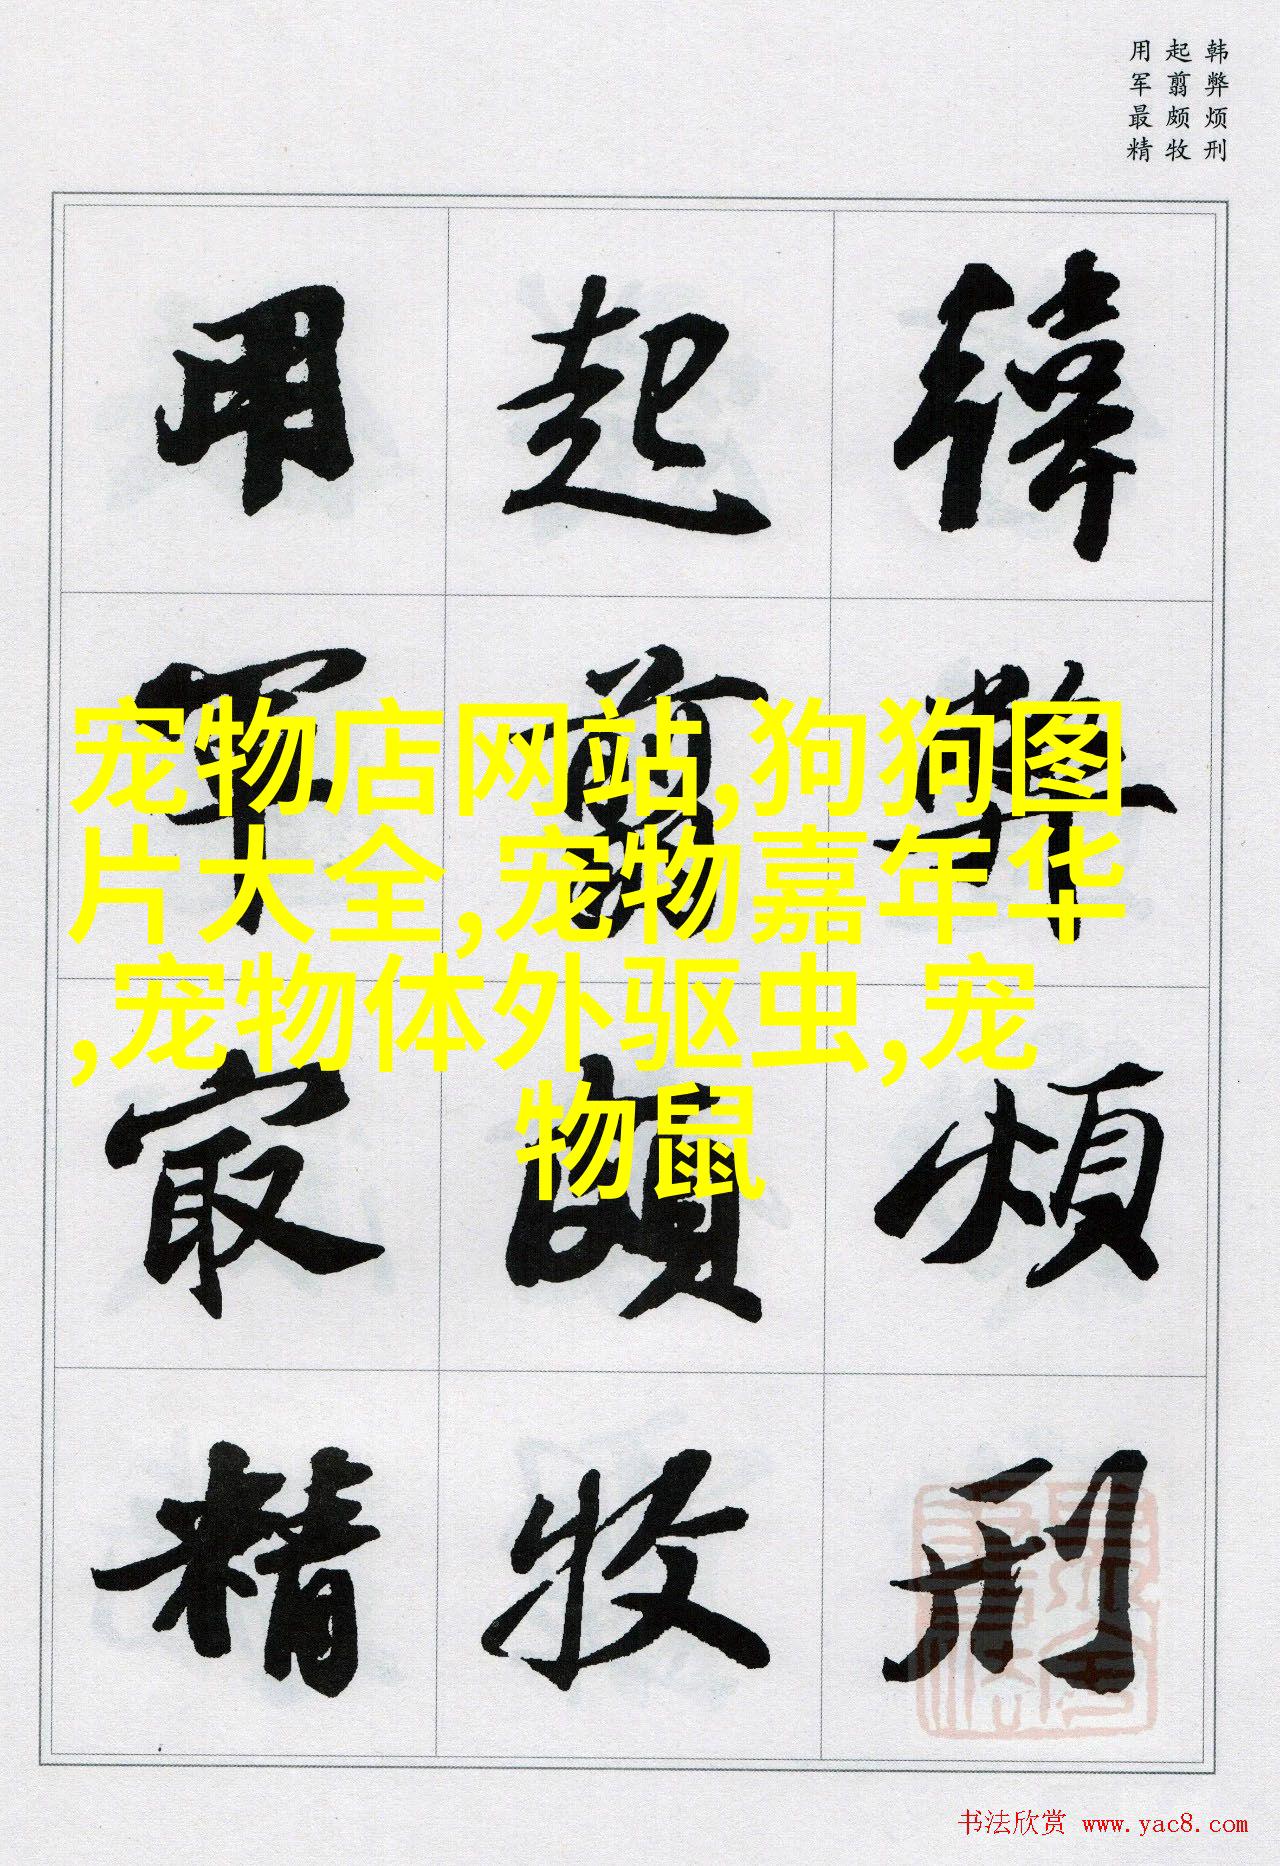 韩弊烦刑
起翦颇牧
用军最精
韩弊烦刑
起翦颇牧
用军最精
宠物店网站,狗狗图
片大全,宠物嘉年华
,宠物体外驱虫,宠
物鼠
书法欣赏 www.yac8.com